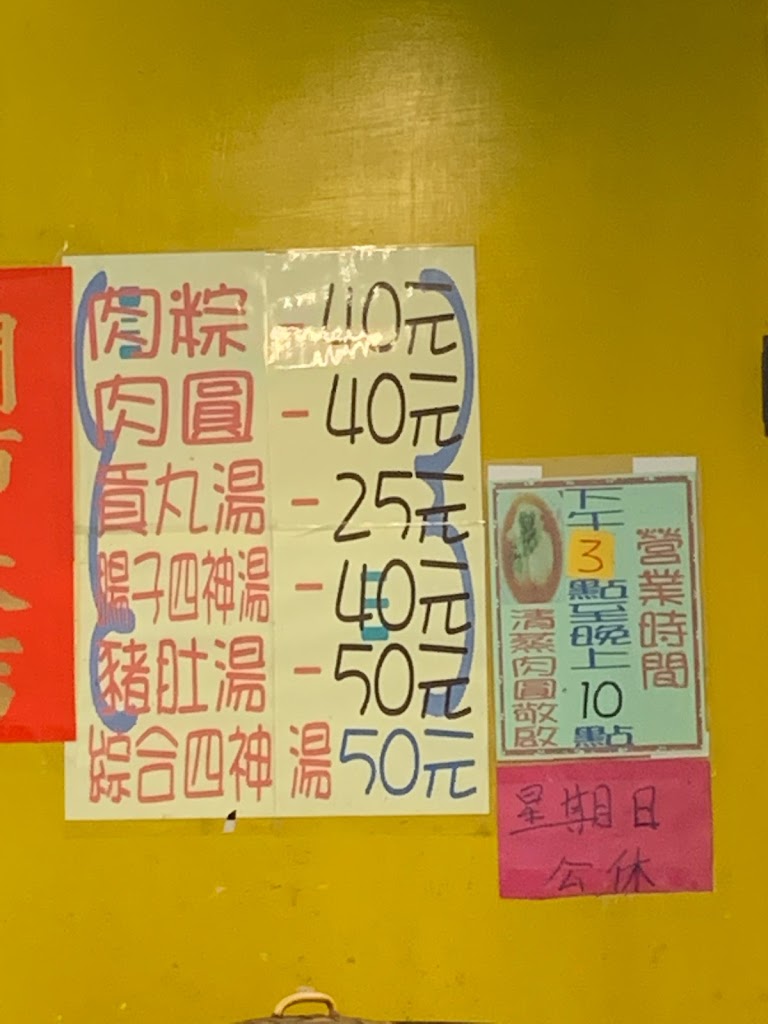 肉粽 - 40元
肉圓 - 40元
貢丸湯 - 25元
腸子四神湯 - 40元
豬肚湯 - 50元
綜合四神湯 50元
營業時間
下午3點至晚上10點
清蒸肉圓敬啟
星期日
公休